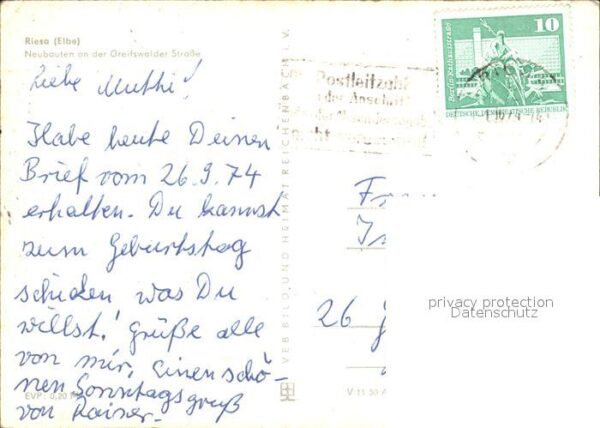 Riesa (Elbe)
Neubauten an der Greifswalder Straße
Liebe Mutti!
Habe heute Deinen
Brief vom 26.9.74
erhalten. Du kannst
zum Geburtstag
schicken was Du
willst! Grüße alle
von mir, einen schö-
nen Sonntagsgruß
von Rainer-
EVP: 0,20
VEB BILD UND HEIMAT REICHENBACH I. V.
V 11 50 A
Postleitzahl
in der Anschrift
nicht
10
Berlin-Rathausstraße
DEUTSCHE DEMOKRATISCHE REPUBLIK
Fr
26
privacy protection
Datenschutz